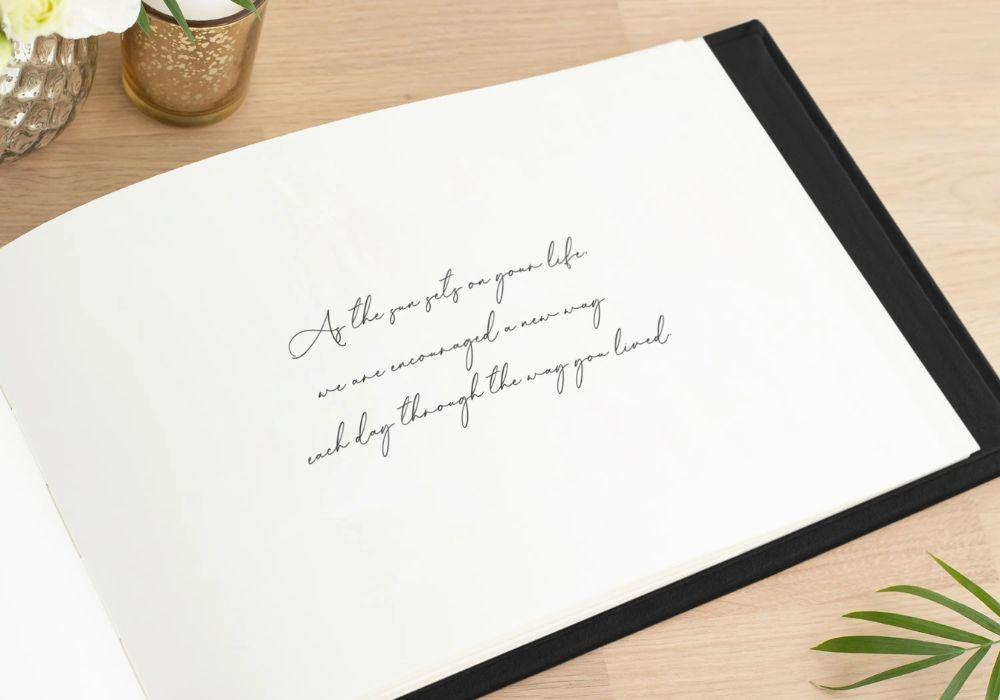 As the sun sets on your life,
we are encouraged a new way
each day through the way you lived.